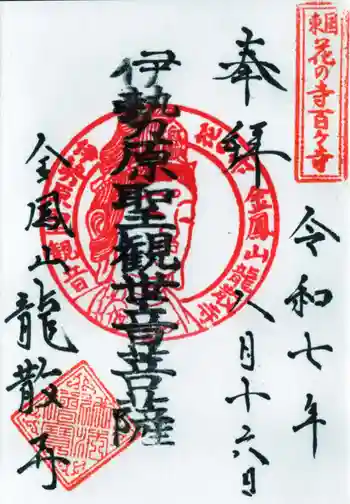 東国
花の寺百ヶ寺
奉拝
令和七年
八月十六日
伊勢原聖観世音菩薩
金鳳山龍散寺
金鳳山龍散寺